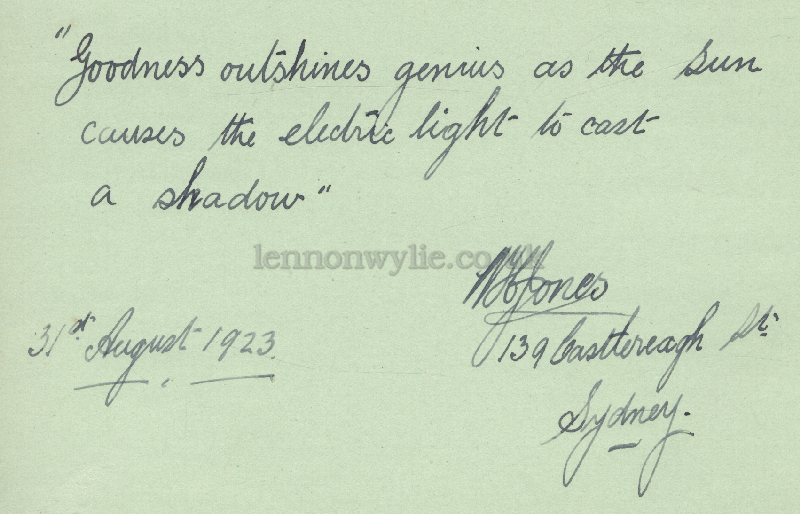 "Goodness outshines genius as the sun
causes the electric light to cast
a shadow"
lennonwylie.co.uk
Jones
31st August 1923.
139 Castlereagh St.
Sydney.